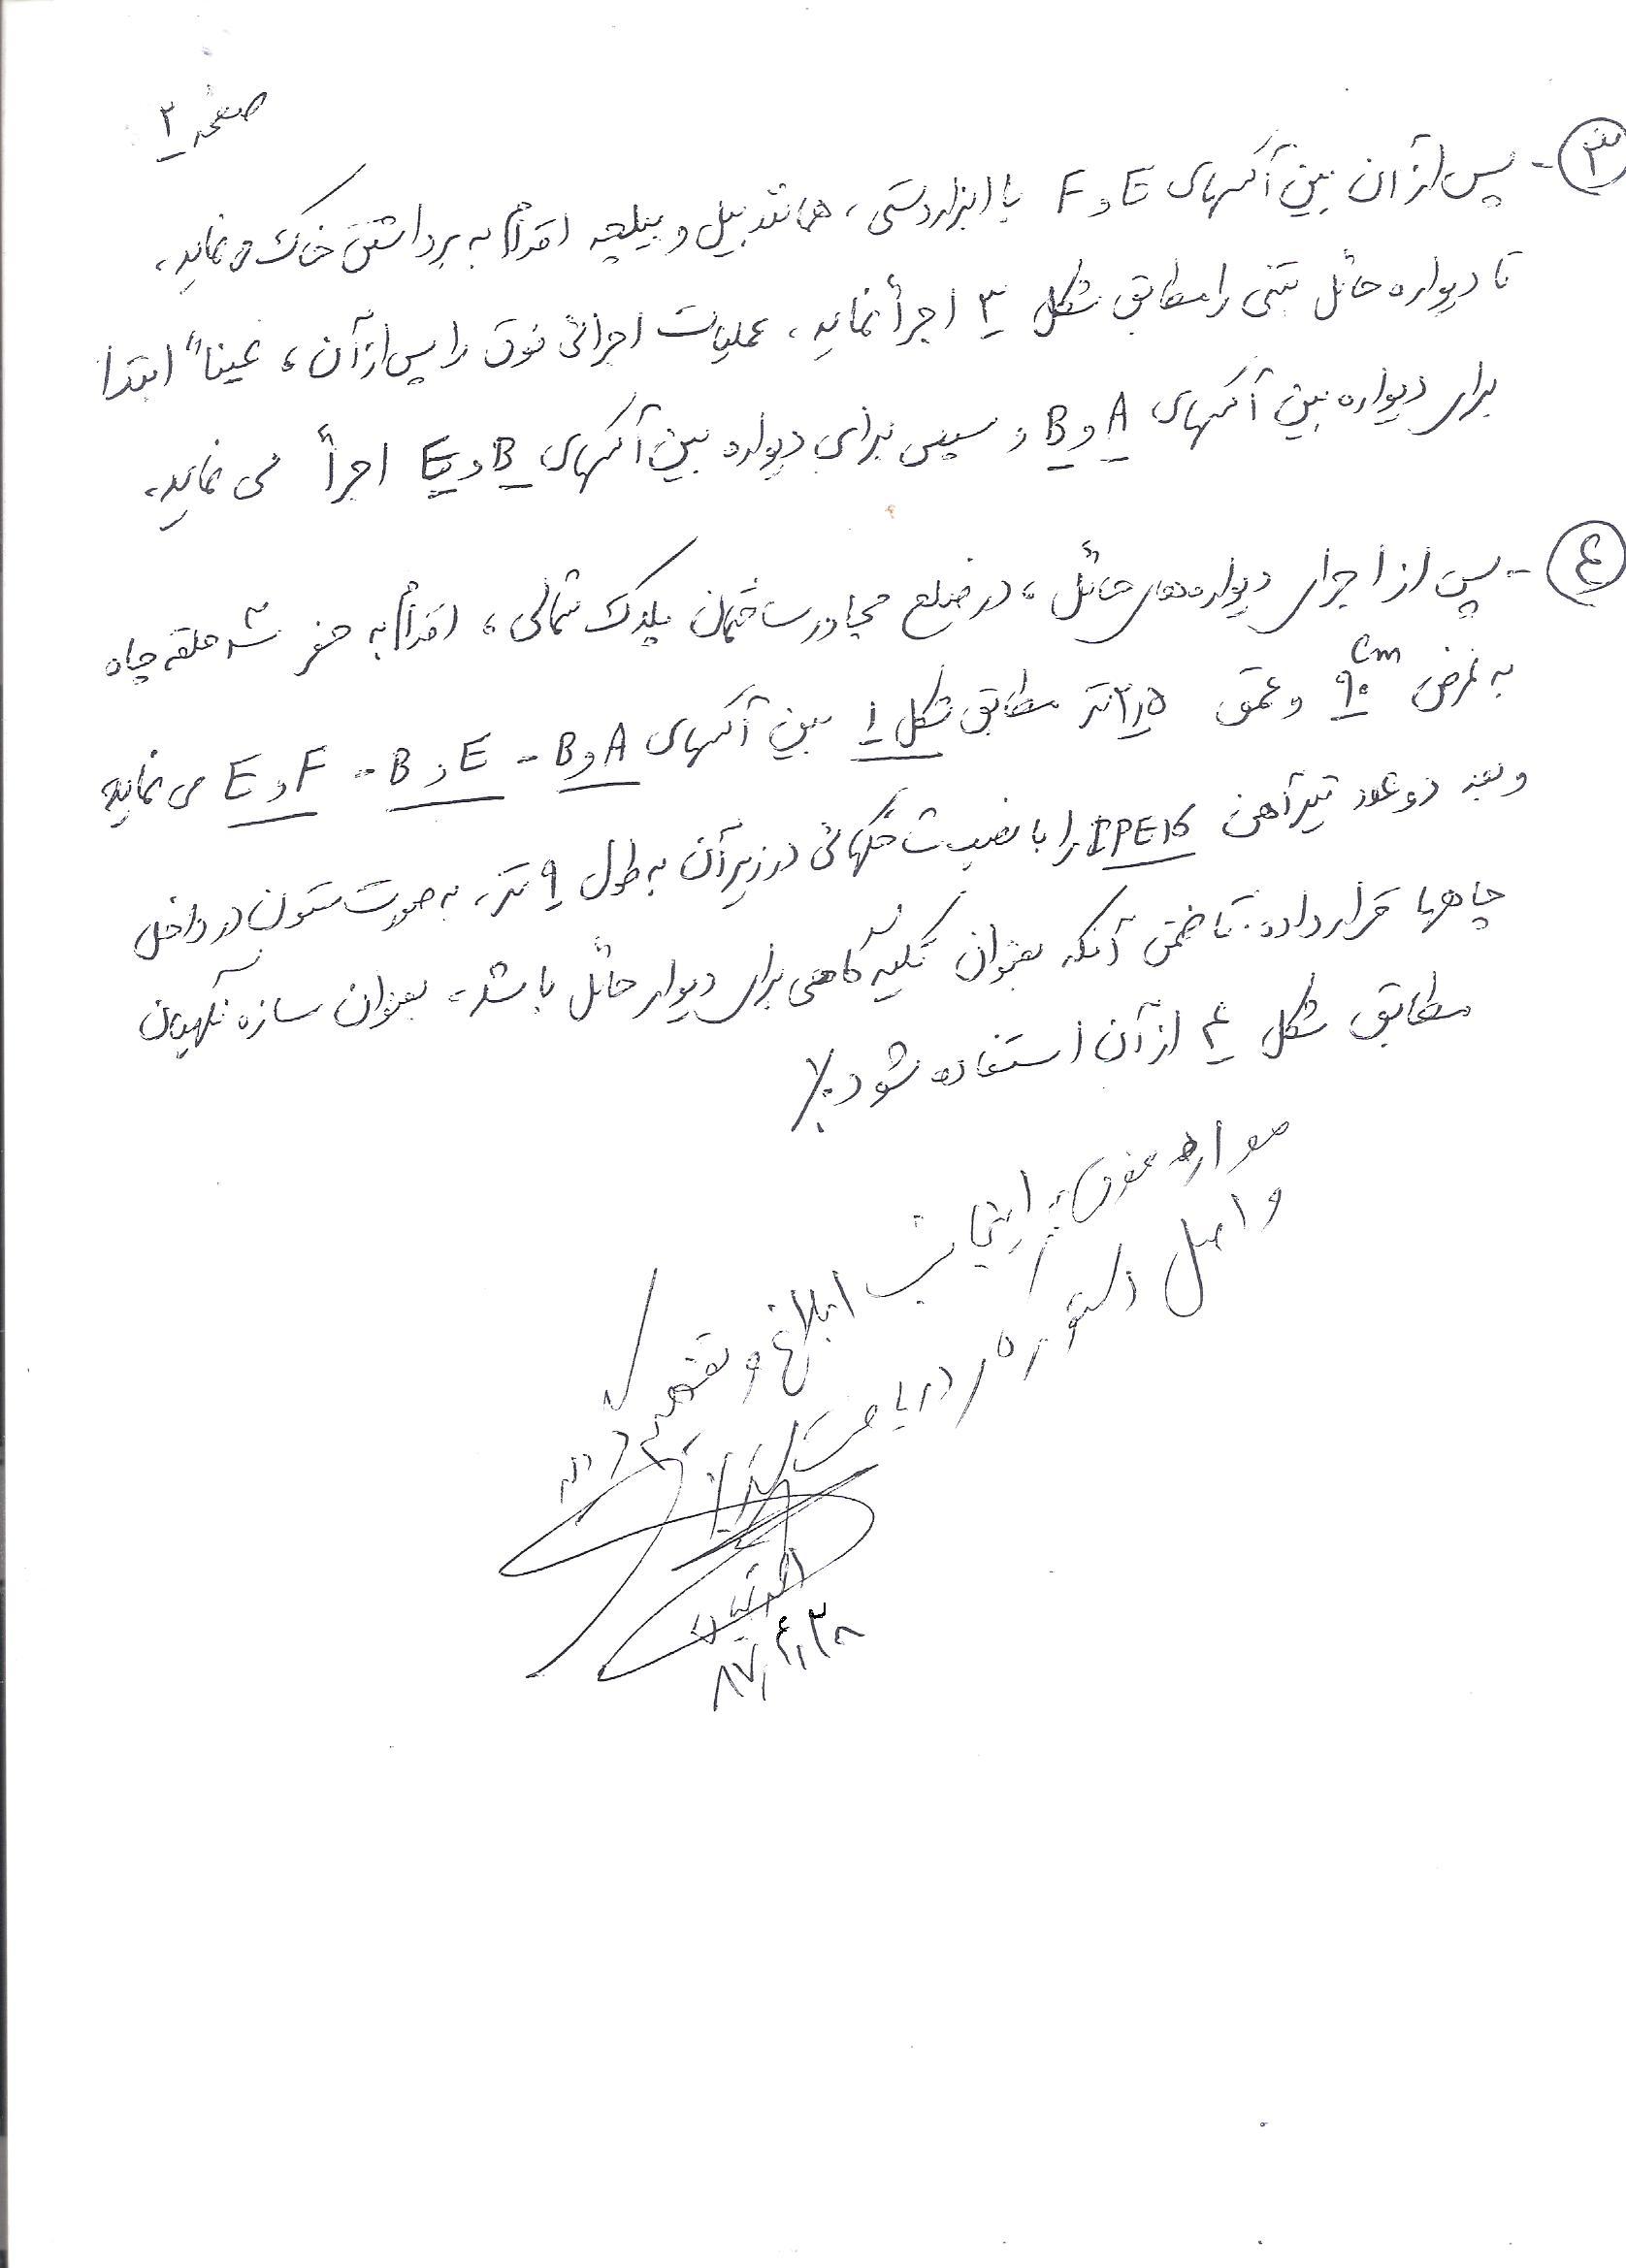 صفحه ۲
۳- پس از آن بین آکسهای E و F با ابزار دستی، همانند بیل و بیلچه اقدام به برداشتن خاک می نماید،
تا دیواره حائل بتنی را مطابق شکل ۳ اجرأ نماید، عملیات اجرائی فوق را پس از آن، عیناً ابتدا
برای دیواره بین آکسهای A و B و سپس برای دیواره بین آکسهای B و E اجرأ می نماید.
۴- پس از اجرای دیواره‌های حائل، در ضلع مجاور ساختمان پلاک شمالی، اقدام به حفر سه حلقه چاه
به عرض ۹۰ cm و عمق ۲٫۵ متر مطابق شکل ۱ بین آکسهای A و B - E و B - F و E می نماید
و بعد دو عدد تیرآهن IPE۱۶ را با نصب شاخکهائی در زیر آن به طول ۹ متر، به صورت ستون در داخل
چاهها قرار داده تا ضمن آنکه بعنوان تکیه گاهی برای دیوار حائل باشد، بعنوان سازه نگهبان
مطابق شکل ۴ از آن استفاده شود.٪
موارد فوق به اینجانب ابلاغ و تفهیم گردید
و اصل دستور کار دریافت گردید
۸۷٫۴٫۳۰